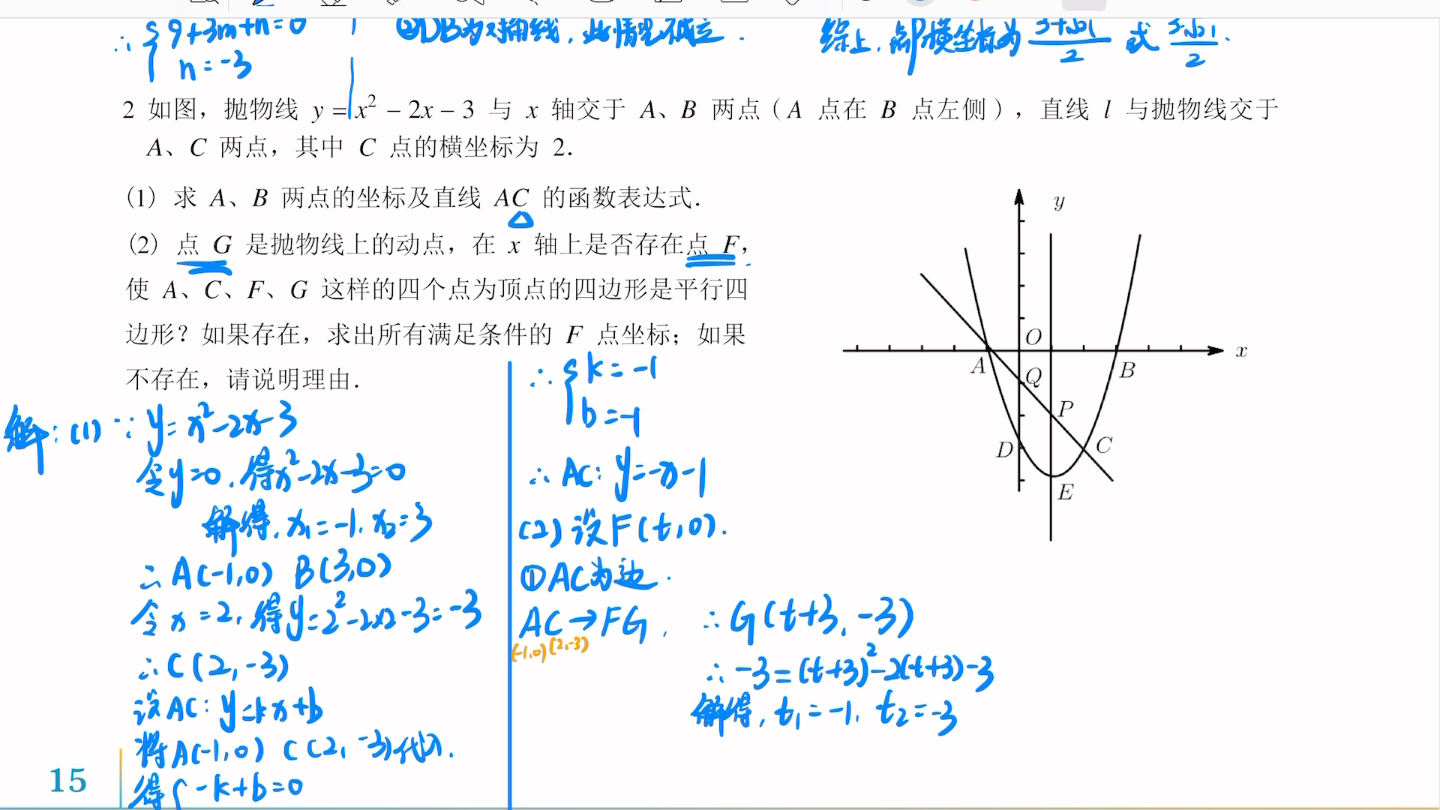 ∴ { 9+3m+n=0
n=-3
综上,点P横坐标为 或
2 如图，抛物线 y = x² − 2x − 3 与 x 轴交于 A、B 两点（A 点在 B 点左侧），直线 l 与抛物线交于
A、C 两点，其中 C 点的横坐标为 2．
(1) 求 A、B 两点的坐标及直线 AC 的函数表达式．
(2) 点 G 是抛物线上的动点，在 x 轴上是否存在点 F，
使 A、C、F、G 这样的四个点为顶点的四边形是平行四
边形？如果存在，求出所有满足条件的 F 点坐标；如果
不存在，请说明理由．
y
O
x
A
Q
B
P
D
C
E
解:(1) ∵ y=x²-2x-3
令y=0,得x²-2x-3=0
解得,x₁=-1,x₂=3
∴ A(-1,0) B(3,0)
令x=2,得y=2²-2×2-3=-3
∴C(2,-3)
设AC: y=kx+b
将A(-1,0) C(2,-3)代入.
得{ -k+b=0
∴ { k=-1
b=-1
∴ AC: y=-x-1
(2) 设F(t,0).
①AC为边.
AC→FG,
(-1,0) (2,-3)
∴G(t+3,-3)
∴ -3=(t+3)²-2(t+3)-3
解得,t₁=-1, t₂=-3
15